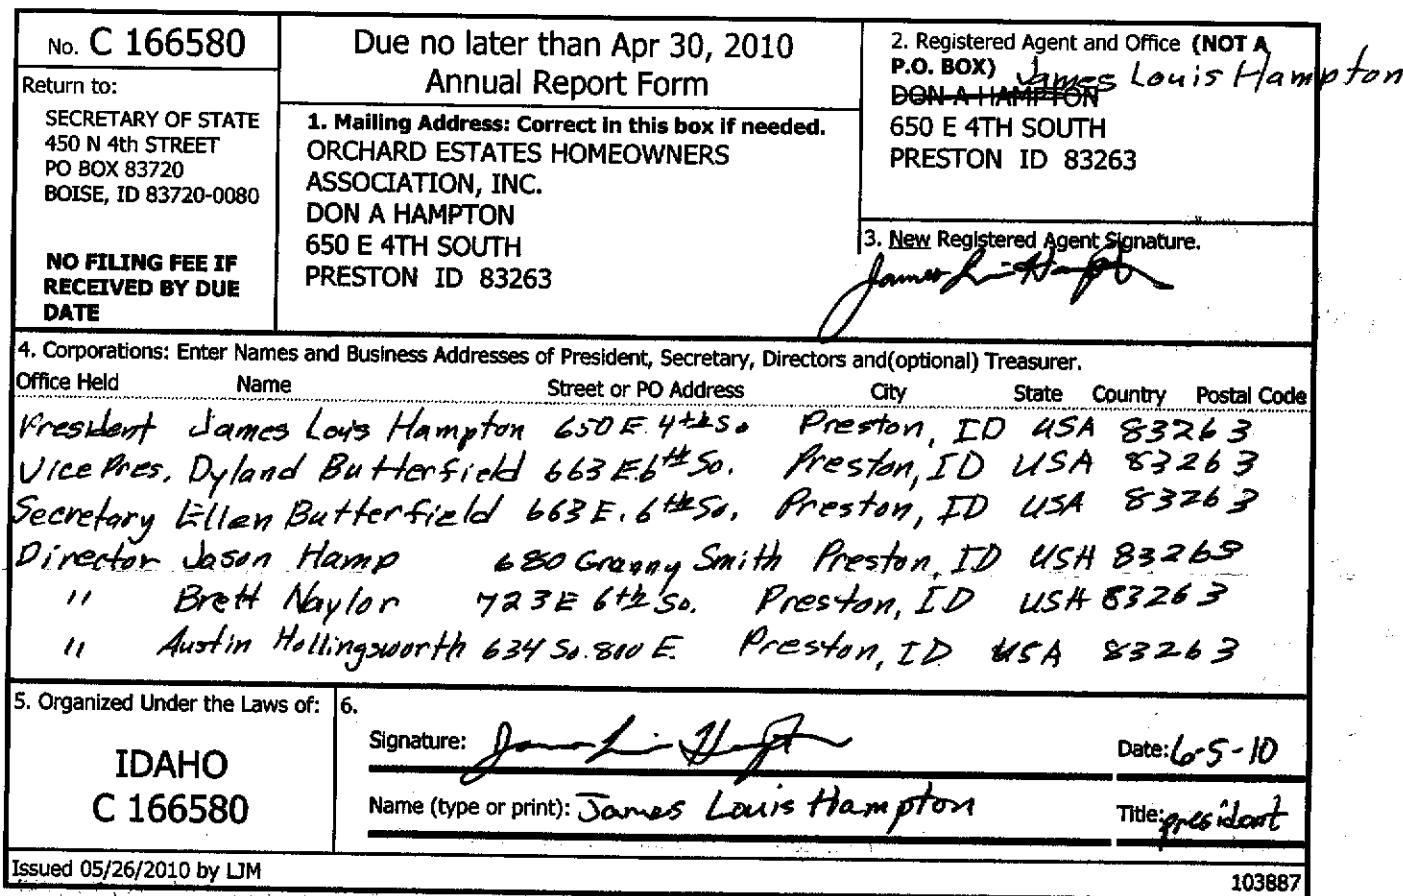 No. C 166580
Return to:
SECRETARY OF STATE
450 N 4th STREET
PO BOX 83720
BOISE, ID 83720-0080
NO FILING FEE IF
RECEIVED BY DUE
DATE
Due no later than Apr 30, 2010
Annual Report Form
1. Mailing Address: Correct in this box if needed.
ORCHARD ESTATES HOMEOWNERS
ASSOCIATION, INC.
DON A HAMPTON
650 E 4TH SOUTH
PRESTON ID 83263
2. Registered Agent and Office (NOT A
P.O. BOX) James Louis Hampton
DON A HAMPTON
650 E 4TH SOUTH
PRESTON ID 83263
3. New Registered Agent Signature.
James Louis Hampton
4. Corporations: Enter Names and Business Addresses of President, Secretary, Directors and(optional) Treasurer.
Office Held Name Street or PO Address City State Country Postal Code
President James Louis Hampton 650 E. 4th So. Preston, ID USA 83263
Vice Pres. Dyland Butterfield 663 E 6th So. Preston, ID USA 83263
Secretary Ellen Butterfield 663 E. 6th So. Preston, ID USA 83263
Director Jason Hamp 680 Granny Smith Preston, ID USA 83263
" Brett Naylor 723 E 6th So. Preston, ID USA 83263
" Austin Hollingsworth 634 So. 800 E. Preston, ID USA 83263
5. Organized Under the Laws of:
IDAHO
C 166580
6.
Signature: James Louis Hampton
Date: 6-5-10
Name (type or print): James Louis Hampton
Title: president
Issued 05/26/2010 by LJM
103887